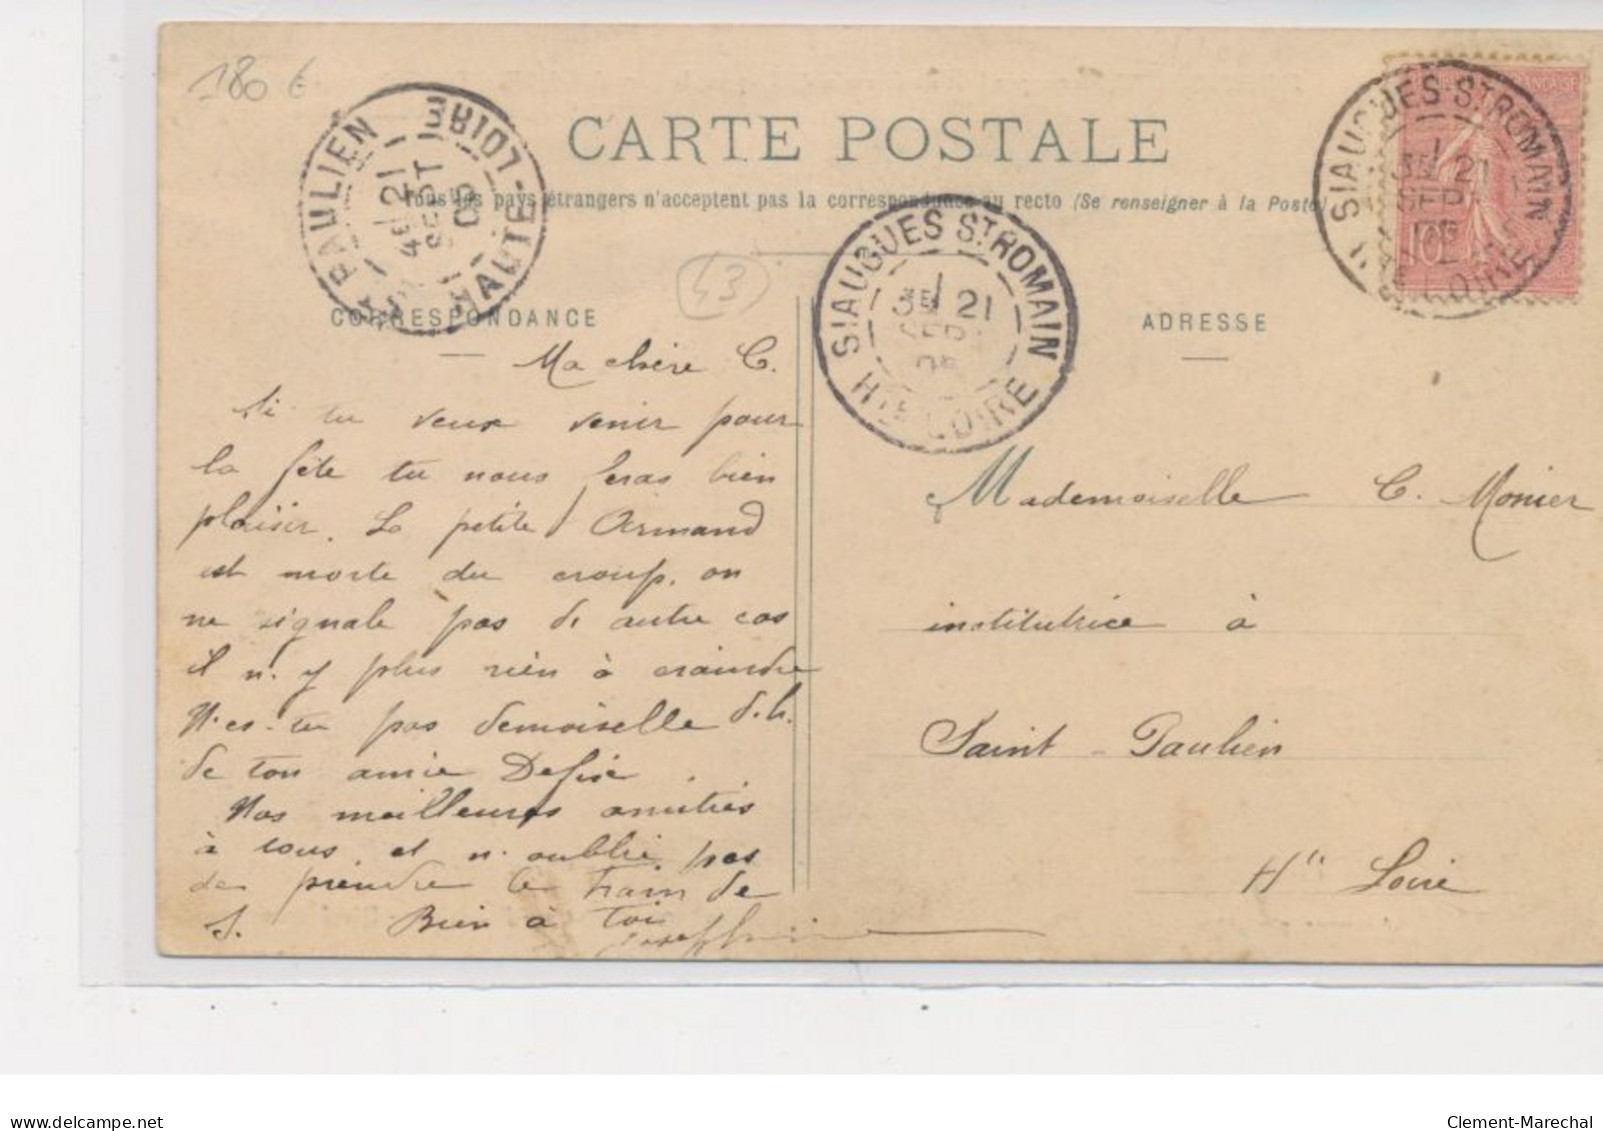 180 €
CARTE POSTALE
Tous les pays étrangers n'acceptent pas la correspondance au recto (Se renseigner à la Poste)
PAULIEN
HAUTE-LOIRE
4E 21
SEPT
05
SIAUGUES ST ROMAIN
3E 21
SEPT
05
HTE LOIRE
SIAUGUES ST ROMAIN
3E 21
SEPT
HTE LOIRE
10
43
CORRESPONDANCE
ADRESSE
Ma chère C.
Si tu veux venir pour
la fête tu nous feras bien
plaisir. La petite Armand
est morte du croup, on
ne signale pas de autre cas
il n'y plus rien à craindre
N'es-tu pas demoiselle d.h.
de ton amie
Nos meilleures amitiés
à tous, et n'oublie pas
de prendre le train de
S. Bien à toi
Mademoiselle C. Monier
institutrice à
Saint-Paulien
Hte Loire
www.delcampe.net
Clement-Marechal